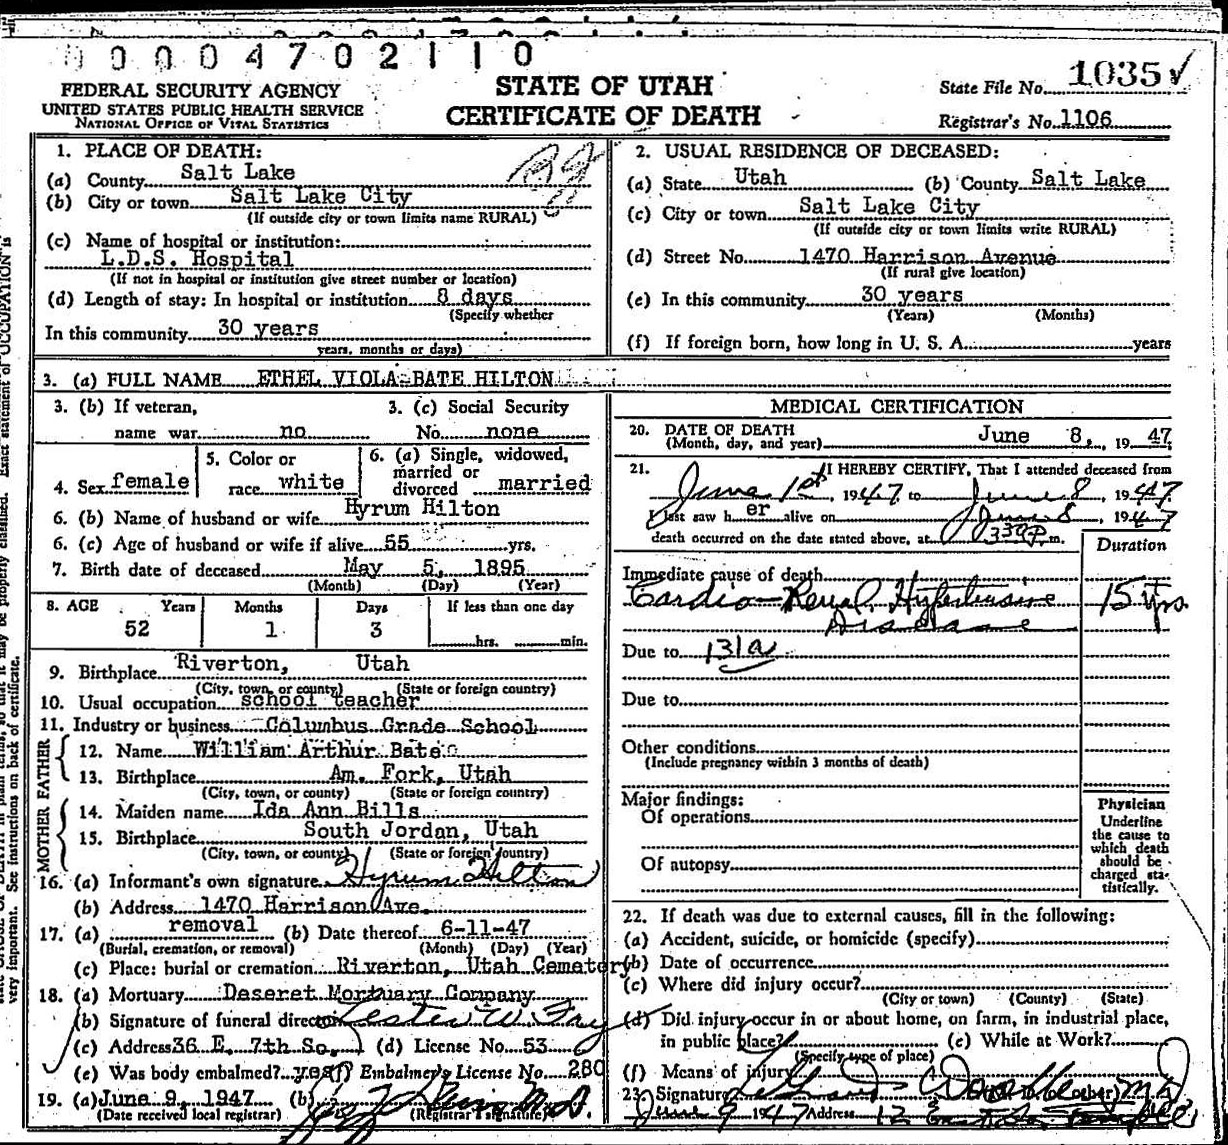 00004702110
FEDERAL SECURITY AGENCY
UNITED STATES PUBLIC HEALTH SERVICE
NATIONAL OFFICE OF VITAL STATISTICS
STATE OF UTAH
CERTIFICATE OF DEATH
State File No. 1035✓
Registrar's No. 1106
1. PLACE OF DEATH:
(a) County Salt Lake
(b) City or town Salt Lake City
(If outside city or town limits name RURAL)
(c) Name of hospital or institution:
L.D.S. Hospital
(If not in hospital or institution give street number or location)
(d) Length of stay: In hospital or institution 8 days
(Specify whether
In this community 30 years
years, months or days)
2. USUAL RESIDENCE OF DECEASED:
(a) State Utah (b) County Salt Lake
(c) City or town Salt Lake City
(If outside city or town limits write RURAL)
(d) Street No. 1470 Harrison Avenue
(If rural give location)
(e) In this community 30 years
(Years) (Months)
(f) If foreign born, how long in U. S. A. years
3. (a) FULL NAME ETHEL VIOLA BATE HILTON
3. (b) If veteran,
name war no
3. (c) Social Security
No. none
4. Sex female
5. Color or
race white
6. (a) Single, widowed,
married or
divorced married
6. (b) Name of husband or wife Hyrum Hilton
6. (c) Age of husband or wife if alive 55 yrs.
7. Birth date of deceased May 5, 1895
(Month) (Day) (Year)
8. AGE Years Months Days If less than one day
52 1 3 hrs. min.
9. Birthplace Riverton, Utah
(City, town, or county) (State or foreign country)
10. Usual occupation school teacher
11. Industry or business Columbus Grade School
FATHER
12. Name William Arthur Bate
13. Birthplace Am. Fork, Utah
(City, town, or county) (State or foreign country)
MOTHER
14. Maiden name Ida Ann Bills
15. Birthplace South Jordan, Utah
(City, town, or county) (State or foreign country)
16. (a) Informant's own signature Hyrum Hilton
(b) Address 1470 Harrison Ave.
17. (a) removal (b) Date thereof 6-11-47
(Burial, cremation, or removal) (Month) (Day) (Year)
(c) Place: burial or cremation Riverton, Utah Cemetory
18. (a) Mortuary Deseret Mortuary Company
(b) Signature of funeral director Lester W. Fry
(c) Address 36 E. 7th So. (d) License No. 53
(e) Was body embalmed? yes (f) Embalmer's License No. 280
19. (a) June 9, 1947 (b)
(Date received local registrar) (Registrar's signature)
MEDICAL CERTIFICATION
20. DATE OF DEATH
(Month, day, and year) June 8, 1947
21. I HEREBY CERTIFY, That I attended deceased from
June 1st, 1947 to June 8, 1947
I last saw her alive on June 8, 1947
death occurred on the date stated above, at 339 P. m.
Duration
Immediate cause of death
Cardio-Renal Hypertensive 15 yrs.
Disease
Due to 131a
Due to
Other conditions
(Include pregnancy within 3 months of death)
Major findings:
Of operations
Of autopsy
Physician
Underline
the cause to
which death
should be
charged sta-
tistically.
22. If death was due to external causes, fill in the following:
(a) Accident, suicide, or homicide (specify)
(b) Date of occurrence
(c) Where did injury occur?
(City or town) (County) (State)
(d) Did injury occur in or about home, on farm, in industrial place,
in public place? (e) While at Work?
(Specify type of place)
(f) Means of injury
23. Signature
June 9 1947 Address
very important. See instructions on back of certificate.